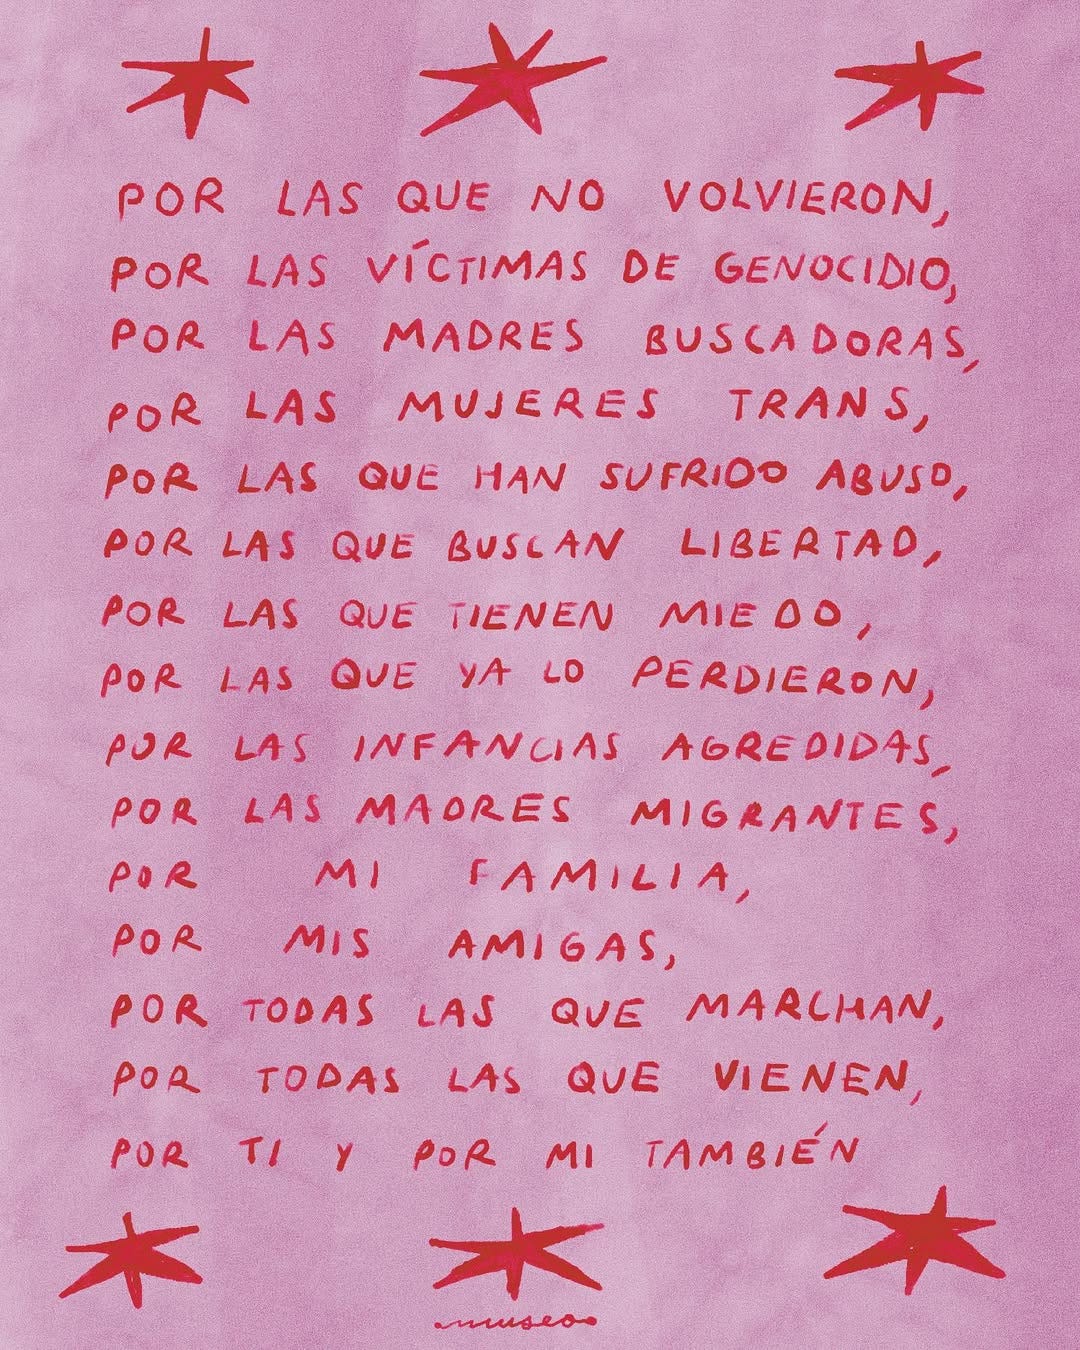 POR LAS QUE NO VOLVIERON,
POR LAS VÍCTIMAS DE GENOCIDIO,
POR LAS MADRES BUSCADORAS,
POR LAS MUJERES TRANS,
POR LAS QUE HAN SUFRIDO ABUSO,
POR LAS QUE BUSCAN LIBERTAD,
POR LAS QUE TIENEN MIEDO,
POR LAS QUE YA LO PERDIERON,
POR LAS INFANCIAS AGREDIDAS,
POR LAS MADRES MIGRANTES,
POR MI FAMILIA,
POR MIS AMIGAS,
POR TODAS LAS QUE MARCHAN,
POR TODAS LAS QUE VIENEN,
POR TI Y POR MI TAMBIÉN
museo